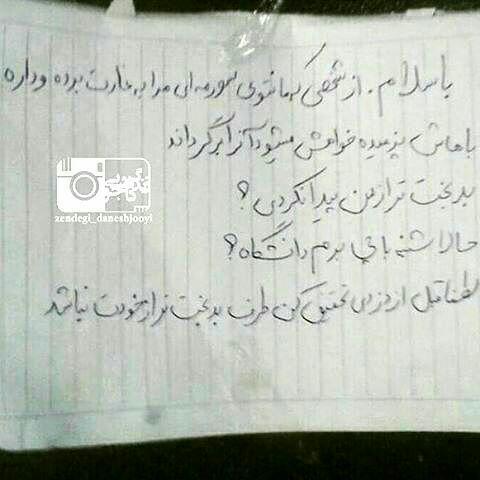 باسلام. از شخصی که مانتوی سورمه‌ای مرا به غارت برده و داره
باهاش پز میده خواهش میشود آنرا برگرداند
بدبخت تر از من پیدا نکردی؟
حالا شنبه با چی برم دانشگاه؟
لطفا قبل از دزدی تحقیق کن طرف بدبخت تر از خودت نباشد
zendegi_daneshjooyi